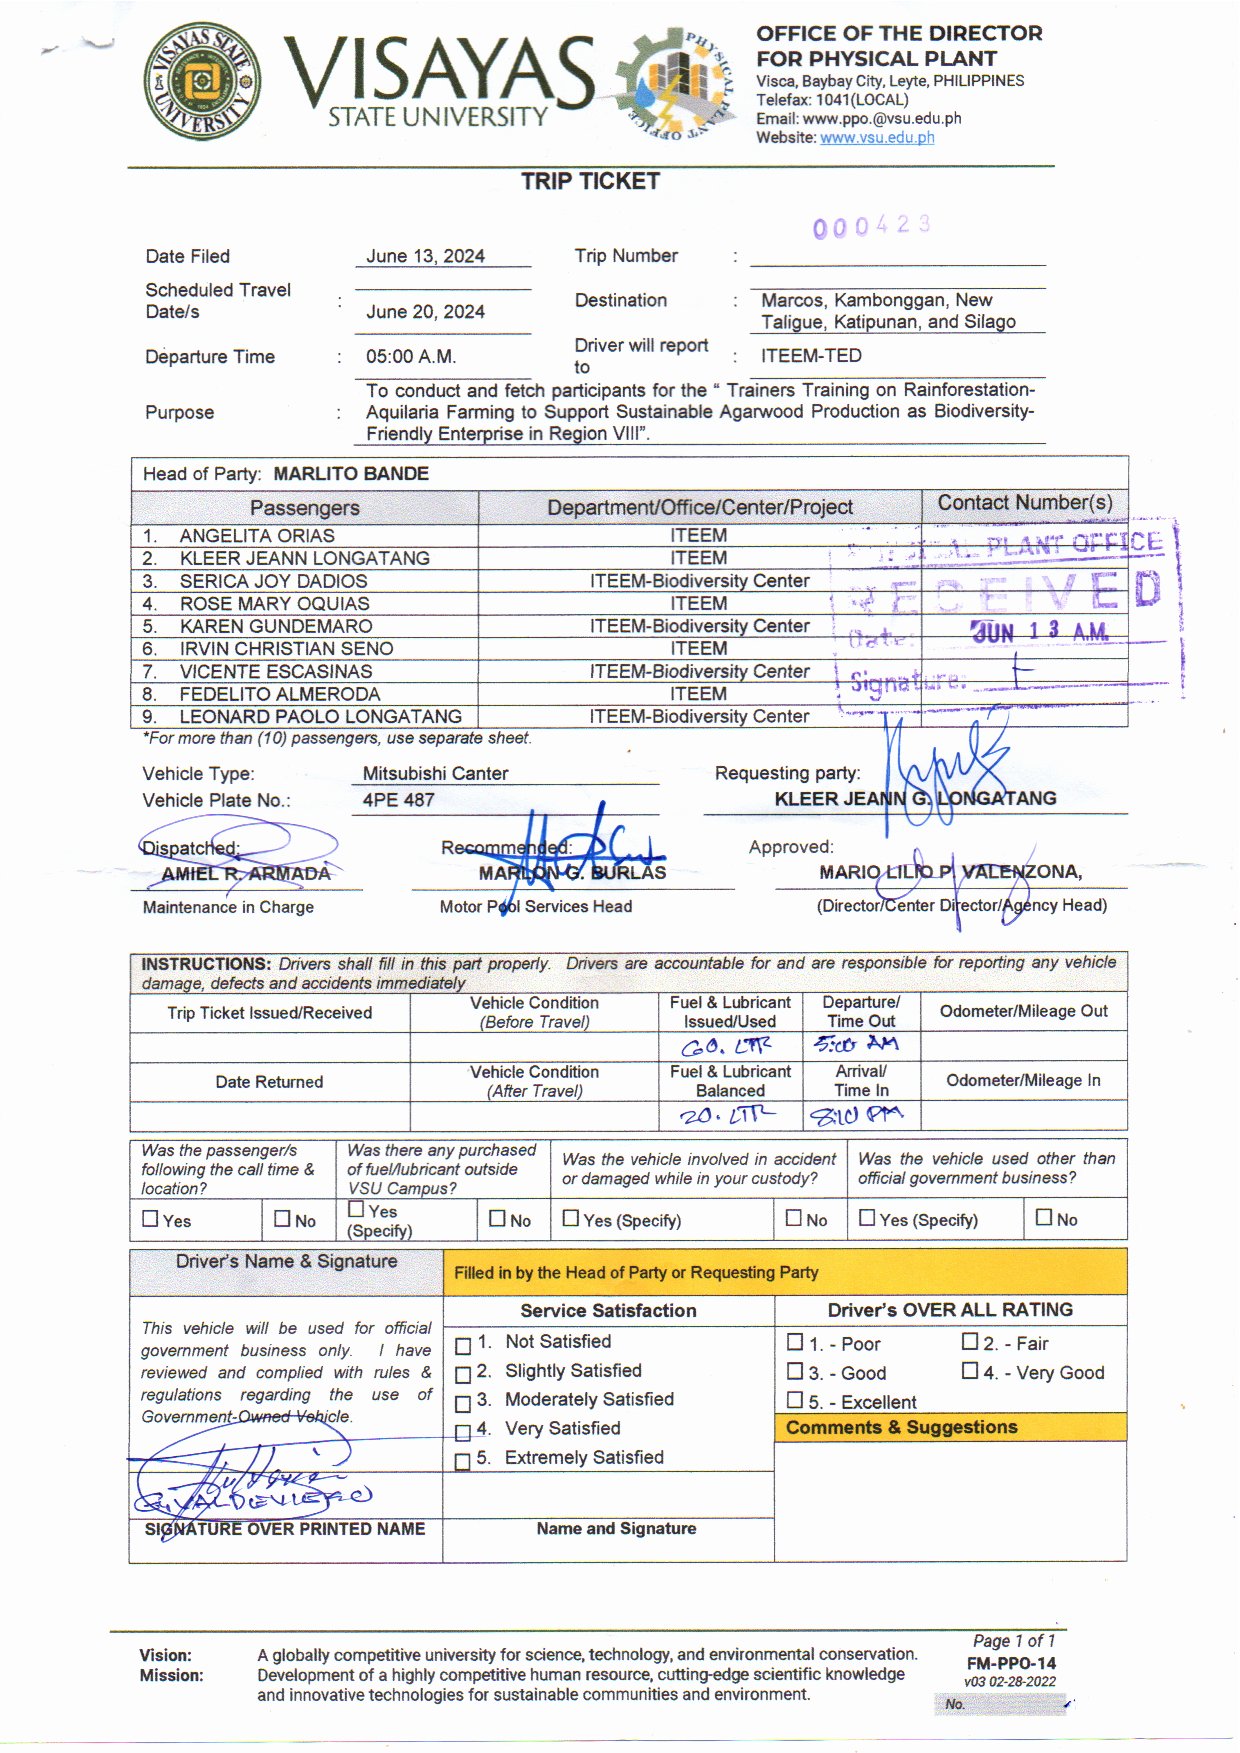 VISAYAS STATE UNIVERSITY
VISAYAS
STATE UNIVERSITY
PHYSICAL PLANT OFFICE
OFFICE OF THE DIRECTOR
FOR PHYSICAL PLANT
Visca, Baybay City, Leyte, PHILIPPINES
Telefax: 1041(LOCAL)
Email: www.ppo.@vsu.edu.ph
Website: www.vsu.edu.ph
TRIP TICKET
000423
Date Filed June 13, 2024 Trip Number :
Scheduled Travel Date/s : June 20, 2024 Destination : Marcos, Kambonggan, New
Taligue, Katipunan, and Silago
Departure Time : 05:00 A.M. Driver will report to : ITEEM-TED
Purpose : To conduct and fetch participants for the “ Trainers Training on Rainforestation-
Aquilaria Farming to Support Sustainable Agarwood Production as Biodiversity-
Friendly Enterprise in Region VIII”.
Head of Party: MARLITO BANDE
Passengers Department/Office/Center/Project Contact Number(s)
1. ANGELITA ORIAS ITEEM
2. KLEER JEANN LONGATANG ITEEM
3. SERICA JOY DADIOS ITEEM-Biodiversity Center
4. ROSE MARY OQUIAS ITEEM
5. KAREN GUNDEMARO ITEEM-Biodiversity Center
6. IRVIN CHRISTIAN SENO ITEEM
7. VICENTE ESCASINAS ITEEM-Biodiversity Center
8. FEDELITO ALMERODA ITEEM
9. LEONARD PAOLO LONGATANG ITEEM-Biodiversity Center
PHYSICAL PLANT OFFICE
RECEIVED
Date: JUN 13 A.M.
Signature:
*For more than (10) passengers, use separate sheet.
Vehicle Type: Mitsubishi Canter Requesting party:
Vehicle Plate No.: 4PE 487 KLEER JEANN G. LONGATANG
Dispatched: Recommended: Approved:
AMIEL R. ARMADA MARLON G. BURLAS MARIO LILIO P. VALENZONA,
Maintenance in Charge Motor Pool Services Head (Director/Center Director/Agency Head)
INSTRUCTIONS: Drivers shall fill in this part properly. Drivers are accountable for and are responsible for reporting any vehicle
damage, defects and accidents immediately
Trip Ticket Issued/Received Vehicle Condition (Before Travel) Fuel & Lubricant Issued/Used Departure/ Time Out Odometer/Mileage Out
60. LTR 5:00 AM
Date Returned Vehicle Condition (After Travel) Fuel & Lubricant Balanced Arrival/ Time In Odometer/Mileage In
20. LTR 8:10 PM
Was the passenger/s following the call time & location? Was there any purchased of fuel/lubricant outside VSU Campus? Was the vehicle involved in accident or damaged while in your custody? Was the vehicle used other than official government business?
Yes No Yes (Specify) No Yes (Specify) No Yes (Specify) No
Driver's Name & Signature Filled in by the Head of Party or Requesting Party
Service Satisfaction Driver's OVER ALL RATING
This vehicle will be used for official
government business only. I have
reviewed and complied with rules &
regulations regarding the use of
Government-Owned Vehicle.
1. Not Satisfied
2. Slightly Satisfied
3. Moderately Satisfied
4. Very Satisfied
5. Extremely Satisfied
1. - Poor 2. - Fair
3. - Good 4. - Very Good
5. - Excellent
Comments & Suggestions
SIGNATURE OVER PRINTED NAME Name and Signature
Vision: A globally competitive university for science, technology, and environmental conservation.
Mission: Development of a highly competitive human resource, cutting-edge scientific knowledge
and innovative technologies for sustainable communities and environment.
Page 1 of 1
FM-PPO-14
v03 02-28-2022
No.